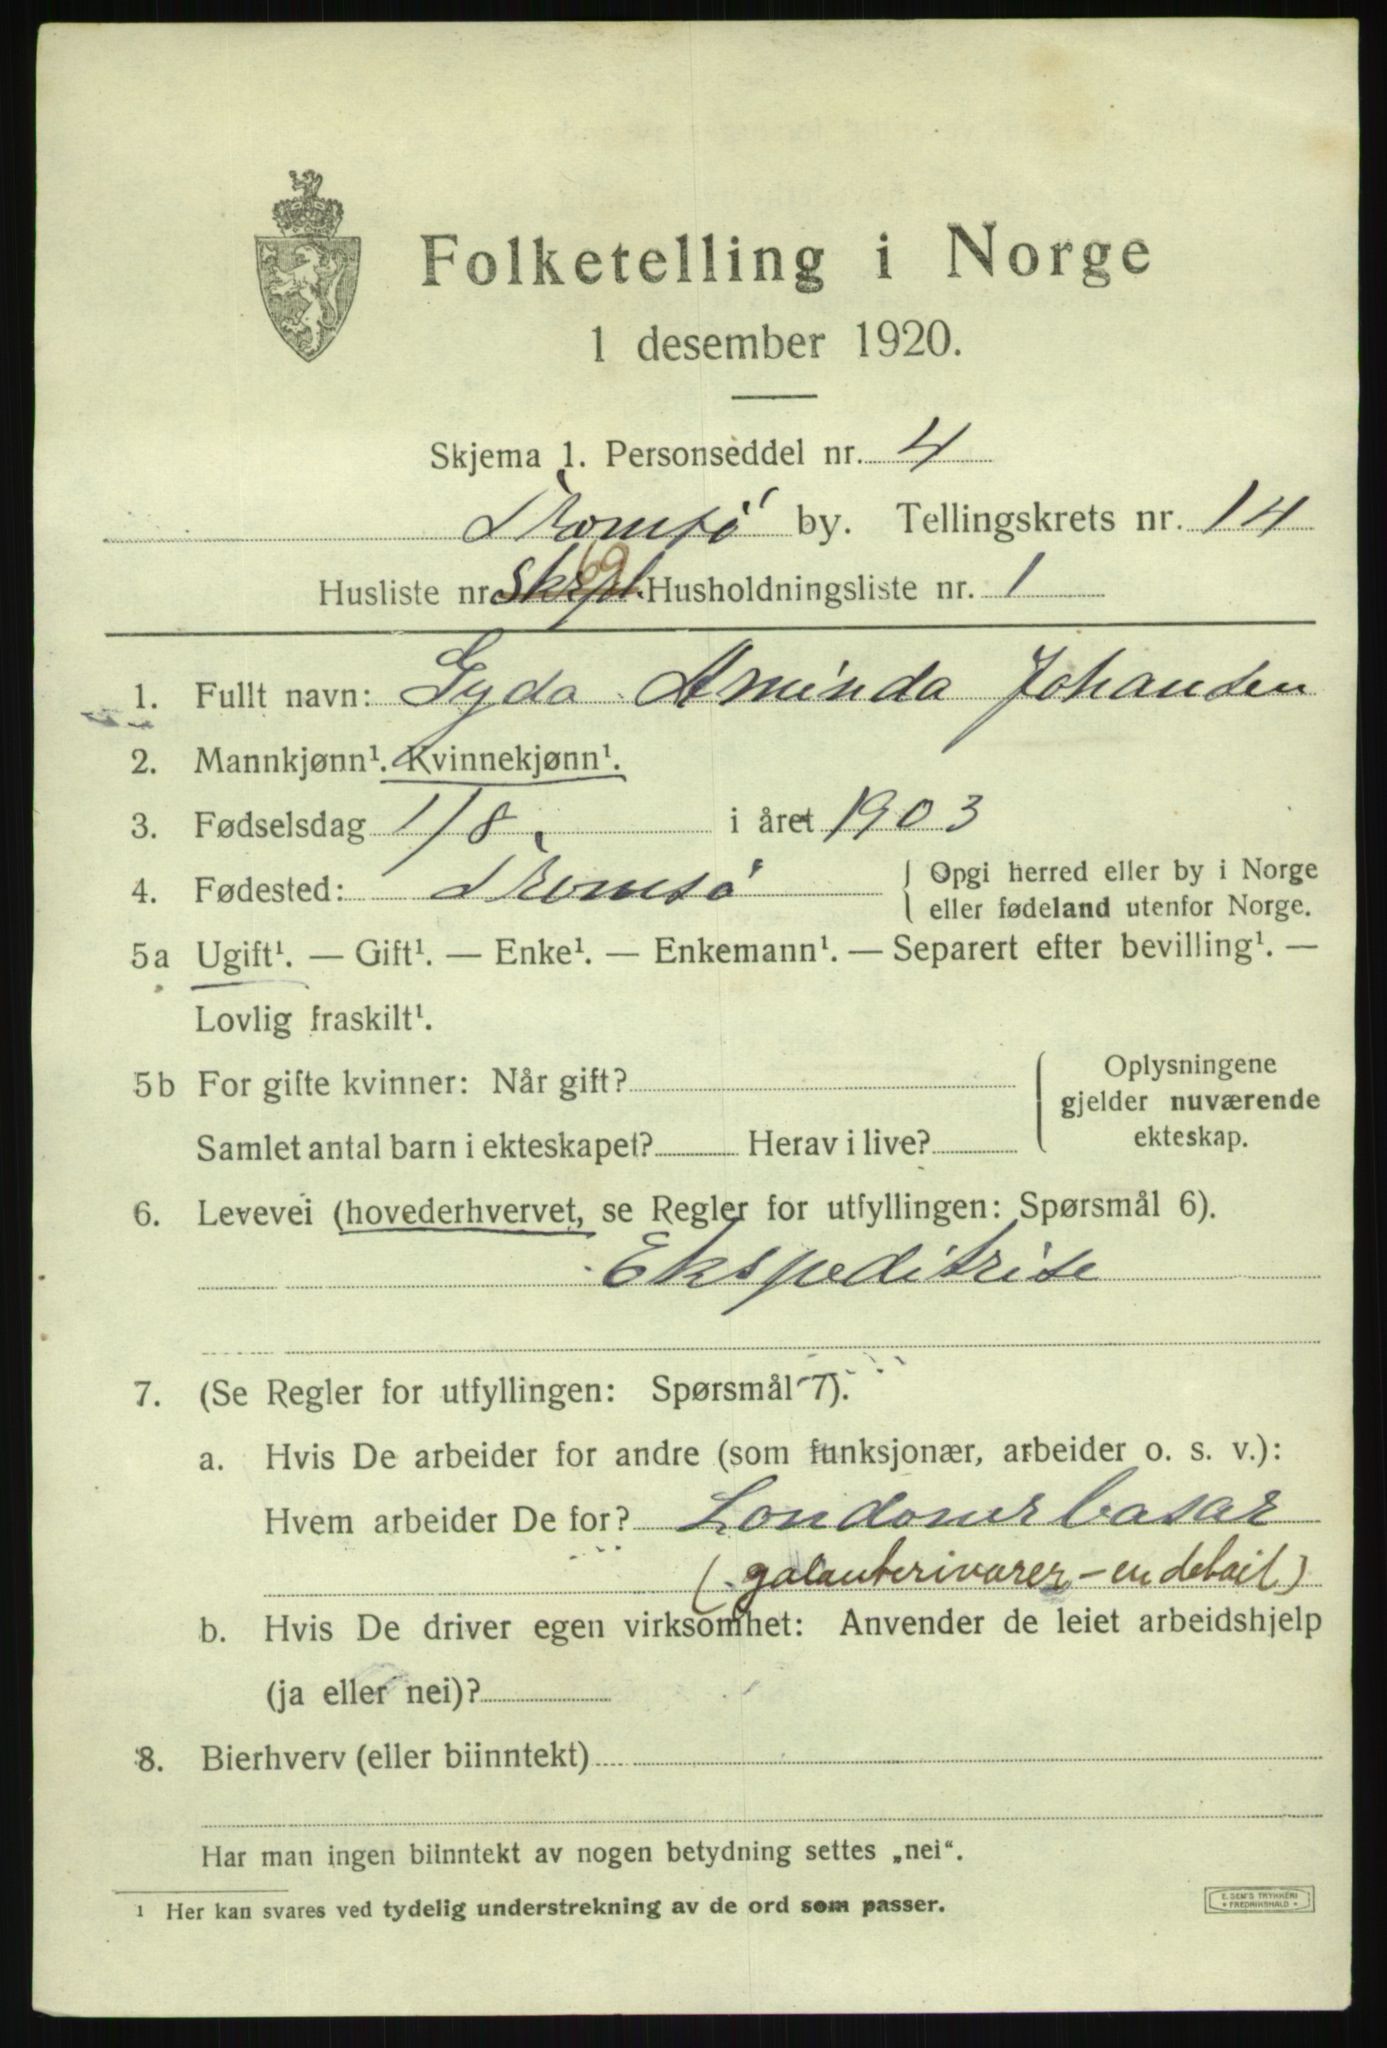 Folketelling i Norge
1 desember 1920.
Skjema 1. Personseddel nr. 4
Tromsø by. Tellingskrets nr. 14
Husliste nr. 69 Husholdningsliste nr. 1
1. Fullt navn: Gyda Aminda Johansen
2. Mannkjønn¹. Kvinnekjønn¹.
3. Fødselsdag 1/8. i året 1903
4. Fødested: Tromsø { Opgi herred eller by i Norge
eller fødeland utenfor Norge.
5a Ugift¹. — Gift¹. — Enke¹. — Enkemann¹. — Separert efter bevilling¹. —
Lovlig fraskilt¹.
5b For gifte kvinner: Når gift? { Oplysningene
gjelder nuværende
Samlet antal barn i ekteskapet? Herav i live? ekteskap.
6. Levevei (hovederhvervet, se Regler for utfyllingen: Spørsmål 6).
Ekspeditrise
7. (Se Regler for utfyllingen: Spørsmål 7).
a. Hvis De arbeider for andre (som funksjonær, arbeider o. s. v.):
Hvem arbeider De for? Londonerbasar
(galanterivarer - en detail)
b. Hvis De driver egen virksomhet: Anvender de leiet arbeidshjelp
(ja eller nei)?
8. Bierhverv (eller biinntekt)
Har man ingen biinntekt av nogen betydning settes „nei“.
1 Her kan svares ved tydelig understrekning av de ord som passer.
E. SEM'S TRYKKERI
FREDRIKSHALD